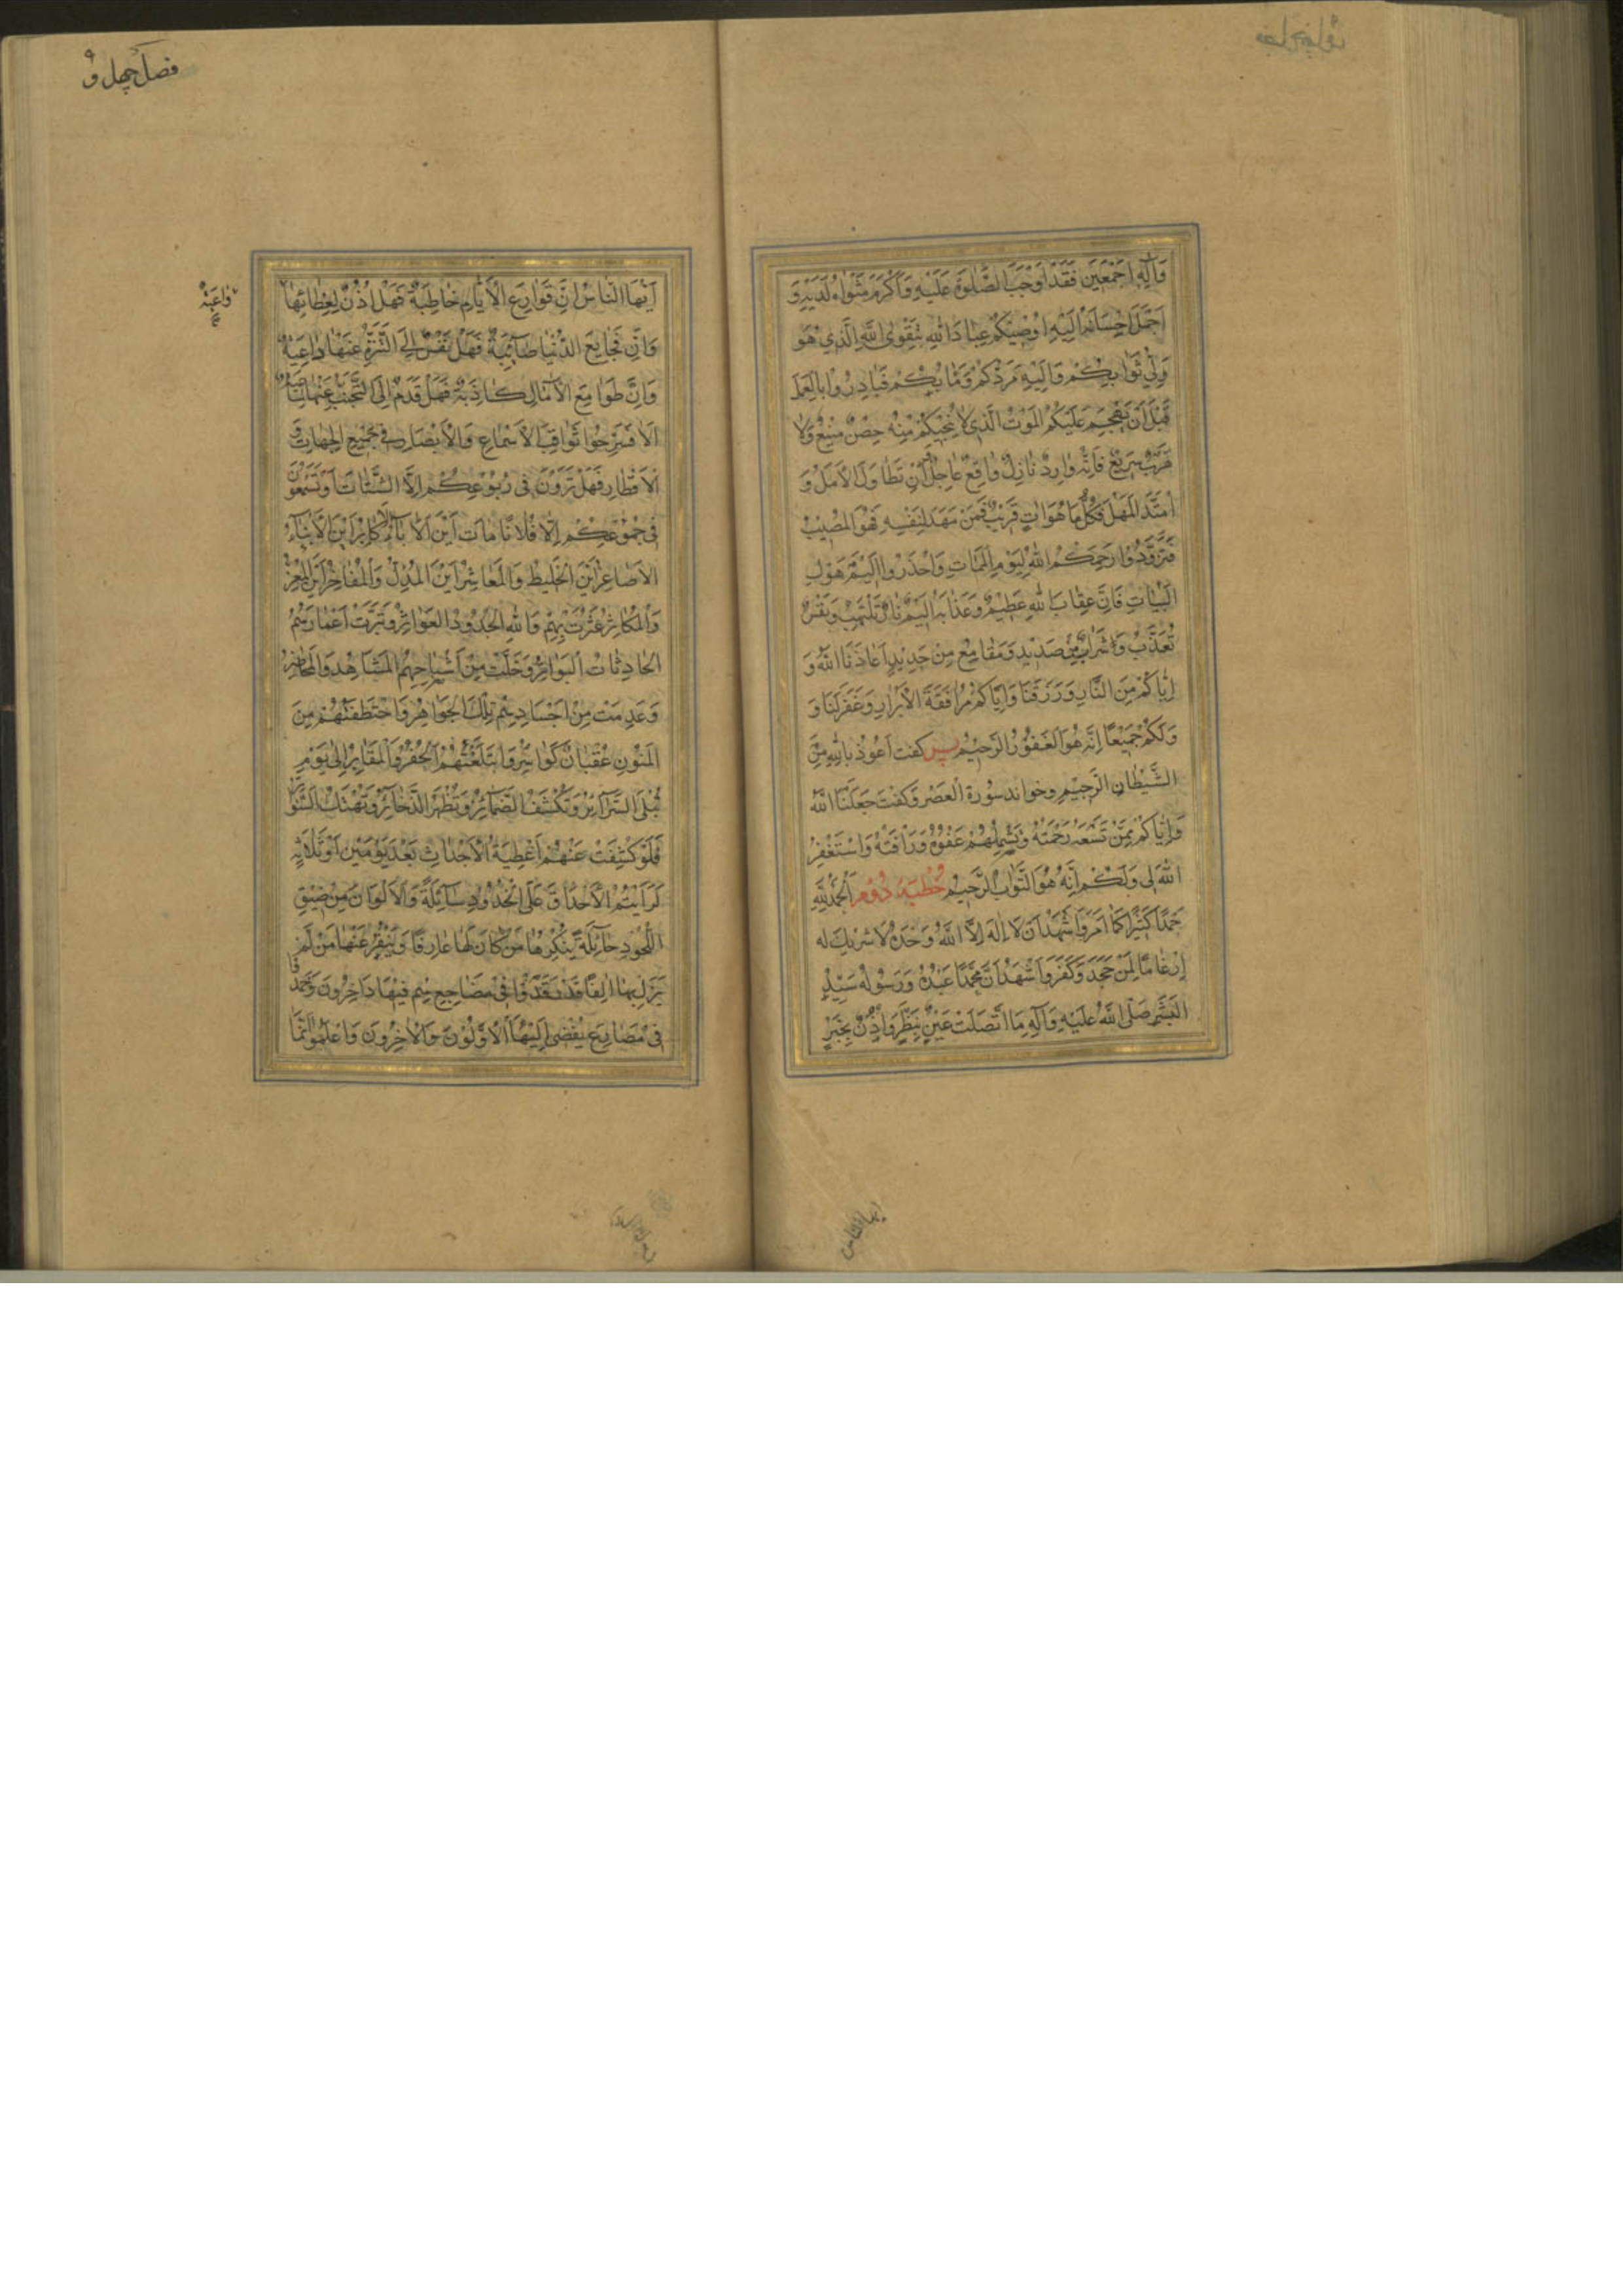 وَآلِهِ اَجْمَعِينَ فَقَدْ اَوْجَبَ الصَّلٰوةَ عَلَيْهِ وَاَكْرَمَ مَثْوٰاهُ لَدَيْهِ وَ
اَجْمَلَ اِحْسَانَهُ اِلَيْهِ اُوصِيْكُمْ عِبَادَ اللهِ بِتَقْوَى اللهِ الَّذِي هُوَ
وَلِيُّ ثَوَابِكُمْ وَاِلَيْهِ مَرَدُّكُمْ وَمَاٰبُكُمْ فَبَادِرُوا بِالْعَمَلِ
قَبْلَ اَنْ يَهْجُمَ عَلَيْكُمُ الْمَوْتُ الَّذِي لَا يُنْجِيكُمْ مِنْهُ حِصْنٌ مَنِيعٌ وَلَا
هَرَبٌ سَرِيعٌ فَاِنَّهُ وَارِدٌ نَازِلٌ وَاقِعٌ عَاجِلٌ وَاِنْ تَطَاوَلَ الْاَمَلُ وَ
امْتَدَّ الْمَهَلُ فَكُلُّ مَا هُوَ اٰتٍ قَرِيبٌ فَمَنْ مَهَّدَ لِنَفْسِهِ فَهُوَ الْمُصِيبُ
فَتَزَوَّدُوا رَحِمَكُمُ اللهُ لِيَوْمِ الْمَمَاتِ وَاحْذَرُوا اَلِيمَ هَوْلِ
الْبَيَاتِ فَاِنَّ عِقَابَ اللهِ عَظِيمٌ وَعَذَابَهُ اَلِيمٌ نَارٌ تَلْتَهِبُ وَنَفْسٌ
تُعَذَّبُ وَشَرَابٌ مِنْ صَدِيدٍ وَمَقَامِعُ مِنْ حَدِيدٍ اَعَاذَنَا اللهُ وَ
اِيَّاكُمْ مِنَ النَّارِ وَرَزَقَنَا وَاِيَّاكُمْ مُرَافَقَةَ الْاَبْرَارِ وَغَفَرَ لَنَا وَ
وَلَكُمْ جَمِيعًا اِنَّهُ هُوَ الْغَفُورُ الرَّحِيمُ پس کفت اَعُوذُ بِاللهِ مِنَ
الشَّيْطَانِ الرَّجِيمِ وخواند سُورَة الْعَصْر وَكفت جَعَلَنَا اللهُ
وَاِيَّاكُمْ مِمَّنْ تَسَعُهُ رَحْمَتُهُ وَيَشْمَلُهُمْ عَفْوُهُ وَرَاْفَتُهُ وَاَسْتَغْفِرُ
اللهَ لِي وَلَكُمْ اِنَّهُ هُوَ التَّوَّابُ الرَّحِيمُ خُطْبَهٔ دُوُم اَلْحَمْدُ لِلّٰهِ
حَمْدًا كَثِيرًا كَمَا اَمَرَ وَاَشْهَدُ اَنْ لَا اِلٰهَ اِلَّا اللهُ وَحْدَهُ لَا شَرِيكَ لَه
اِرْغَامًا لِمَنْ جَحَدَ وَكَفَرَ وَاَشْهَدُ اَنَّ مُحَمَّدًا عَبْدُهُ وَرَسُولُهُ سَيِّدُ
الْبَشَرِ صَلَّى اللهُ عَلَيْهِ وَآلِهِ مَا اتَّصَلَتْ عَيْنٌ بِنَظَرٍ وَاُذُنٌ بِخَبَرٍ
ايها الناس
فصل چهل و۹
اَيُّهَا النَّاسُ اِنَّ قَوَارِعَ الْاَيَّامِ خَاطِبَةٌ فَهَلْ اُذُنٌ لِعِظَاتِهَا
وَاعِيَةٌ
وَاِنَّ فَجَايِعَ الدُّنْيَا صَائِبَةٌ فَهَلْ نَفْسٌ اِلَى التَّنَزُّهِ عَنْهَا دَاعِيَةٌ
وَاِنَّ طَوَامِعَ الْاٰمَالِ كَاذِبَةٌ فَهَلْ قَدَمٌ اِلَى التَّجَنُّبِ عَنْهَا
اَلَا فَسَرِّحُوا ثَوَاقِبَ الْاَسْمَاعِ وَالْاَبْصَارِ فِي جَمِيعِ الْجِهَاتِ وَ
الْاَقْطَارِ فَهَلْ تَرَوْنَ فِي رُبُوعِكُمْ اِلَّا الشَّتَاتَ اَوْ تَسْمَعُونَ
فِي جُمُوعِكُمْ اِلَّا فُلَانًا مَاتَ اَيْنَ الْاٰبَاءُ الْاَكَابِرُ اَيْنَ الْاَبْنَاءُ
الْاَصَاغِرُ اَيْنَ الْخَلِيطُ وَالْمُعَاشِرُ اَيْنَ الْمُدِلُّ وَالْمُفَاخِرُ اَيْنَ الْمُعِزُّ
وَالْمُكَاثِرُ عَثَرَتْ بِهِمْ وَاللهِ الْجُدُودُ الْعَوَاثِرُ وَبَتَرَتْ اَعْمَارَهُمُ
الْحَادِثَاتُ الْبَوَاتِرُ وَخَلَتْ مِنْ اَشْبَاحِهِمُ الْمَشَاهِدُ وَالْمَحَاضِرُ
وَعَدِمَتْ مِنْ اَجْسَادِهِمْ تِلْكَ الْجَوَاهِرُ وَاخْتَطَفَتْهُمْ مِنَ
الْمَنُونِ عُقْبَانٌ كَوَاسِرُ وَابْتَلَعَتْهُمُ الْحُفَرُ وَالْمَقَابِرُ اِلَى يَوْمِ
تُبْلَى السَّرَائِرُ وَتُكْشَفُ الضَّمَائِرُ وَتُظْهَرُ الذَّخَائِرُ وَتُهْتَكُ السَّوَاتِرُ
فَلَوْ كُشِفَتْ عَنْهُمْ اَغْطِيَةُ الْاَجْدَاثِ بَعْدَ يَوْمَيْنِ اَوْ ثَلَاثٍ
لَرَاَيْتُمُ الْاَحْدَاقَ عَلَى الْخُدُودِ سَائِلَةً وَالْاَلْوَانَ مِنْ ضِيقِ
اللُّحُودِ حَائِلَةً يُنْكِرُهَا مَنْ كَانَ لَهَا عَارِفًا وَيَنْفِرُ عَنْهَا مَنْ لَمْ
يَزَلْ بِهَا اٰلِفًا قَدْ رَقَدُوا فِي مَضَاجِعَ هُمْ فِيهَا دَاخِرُونَ وَخَمَدُوا
فِي مَصَارِعَ يُفْضِي اِلَيْهَا الْاَوَّلُونَ وَالْاٰخِرُونَ وَاعْلَمُوا اَنَّمَا